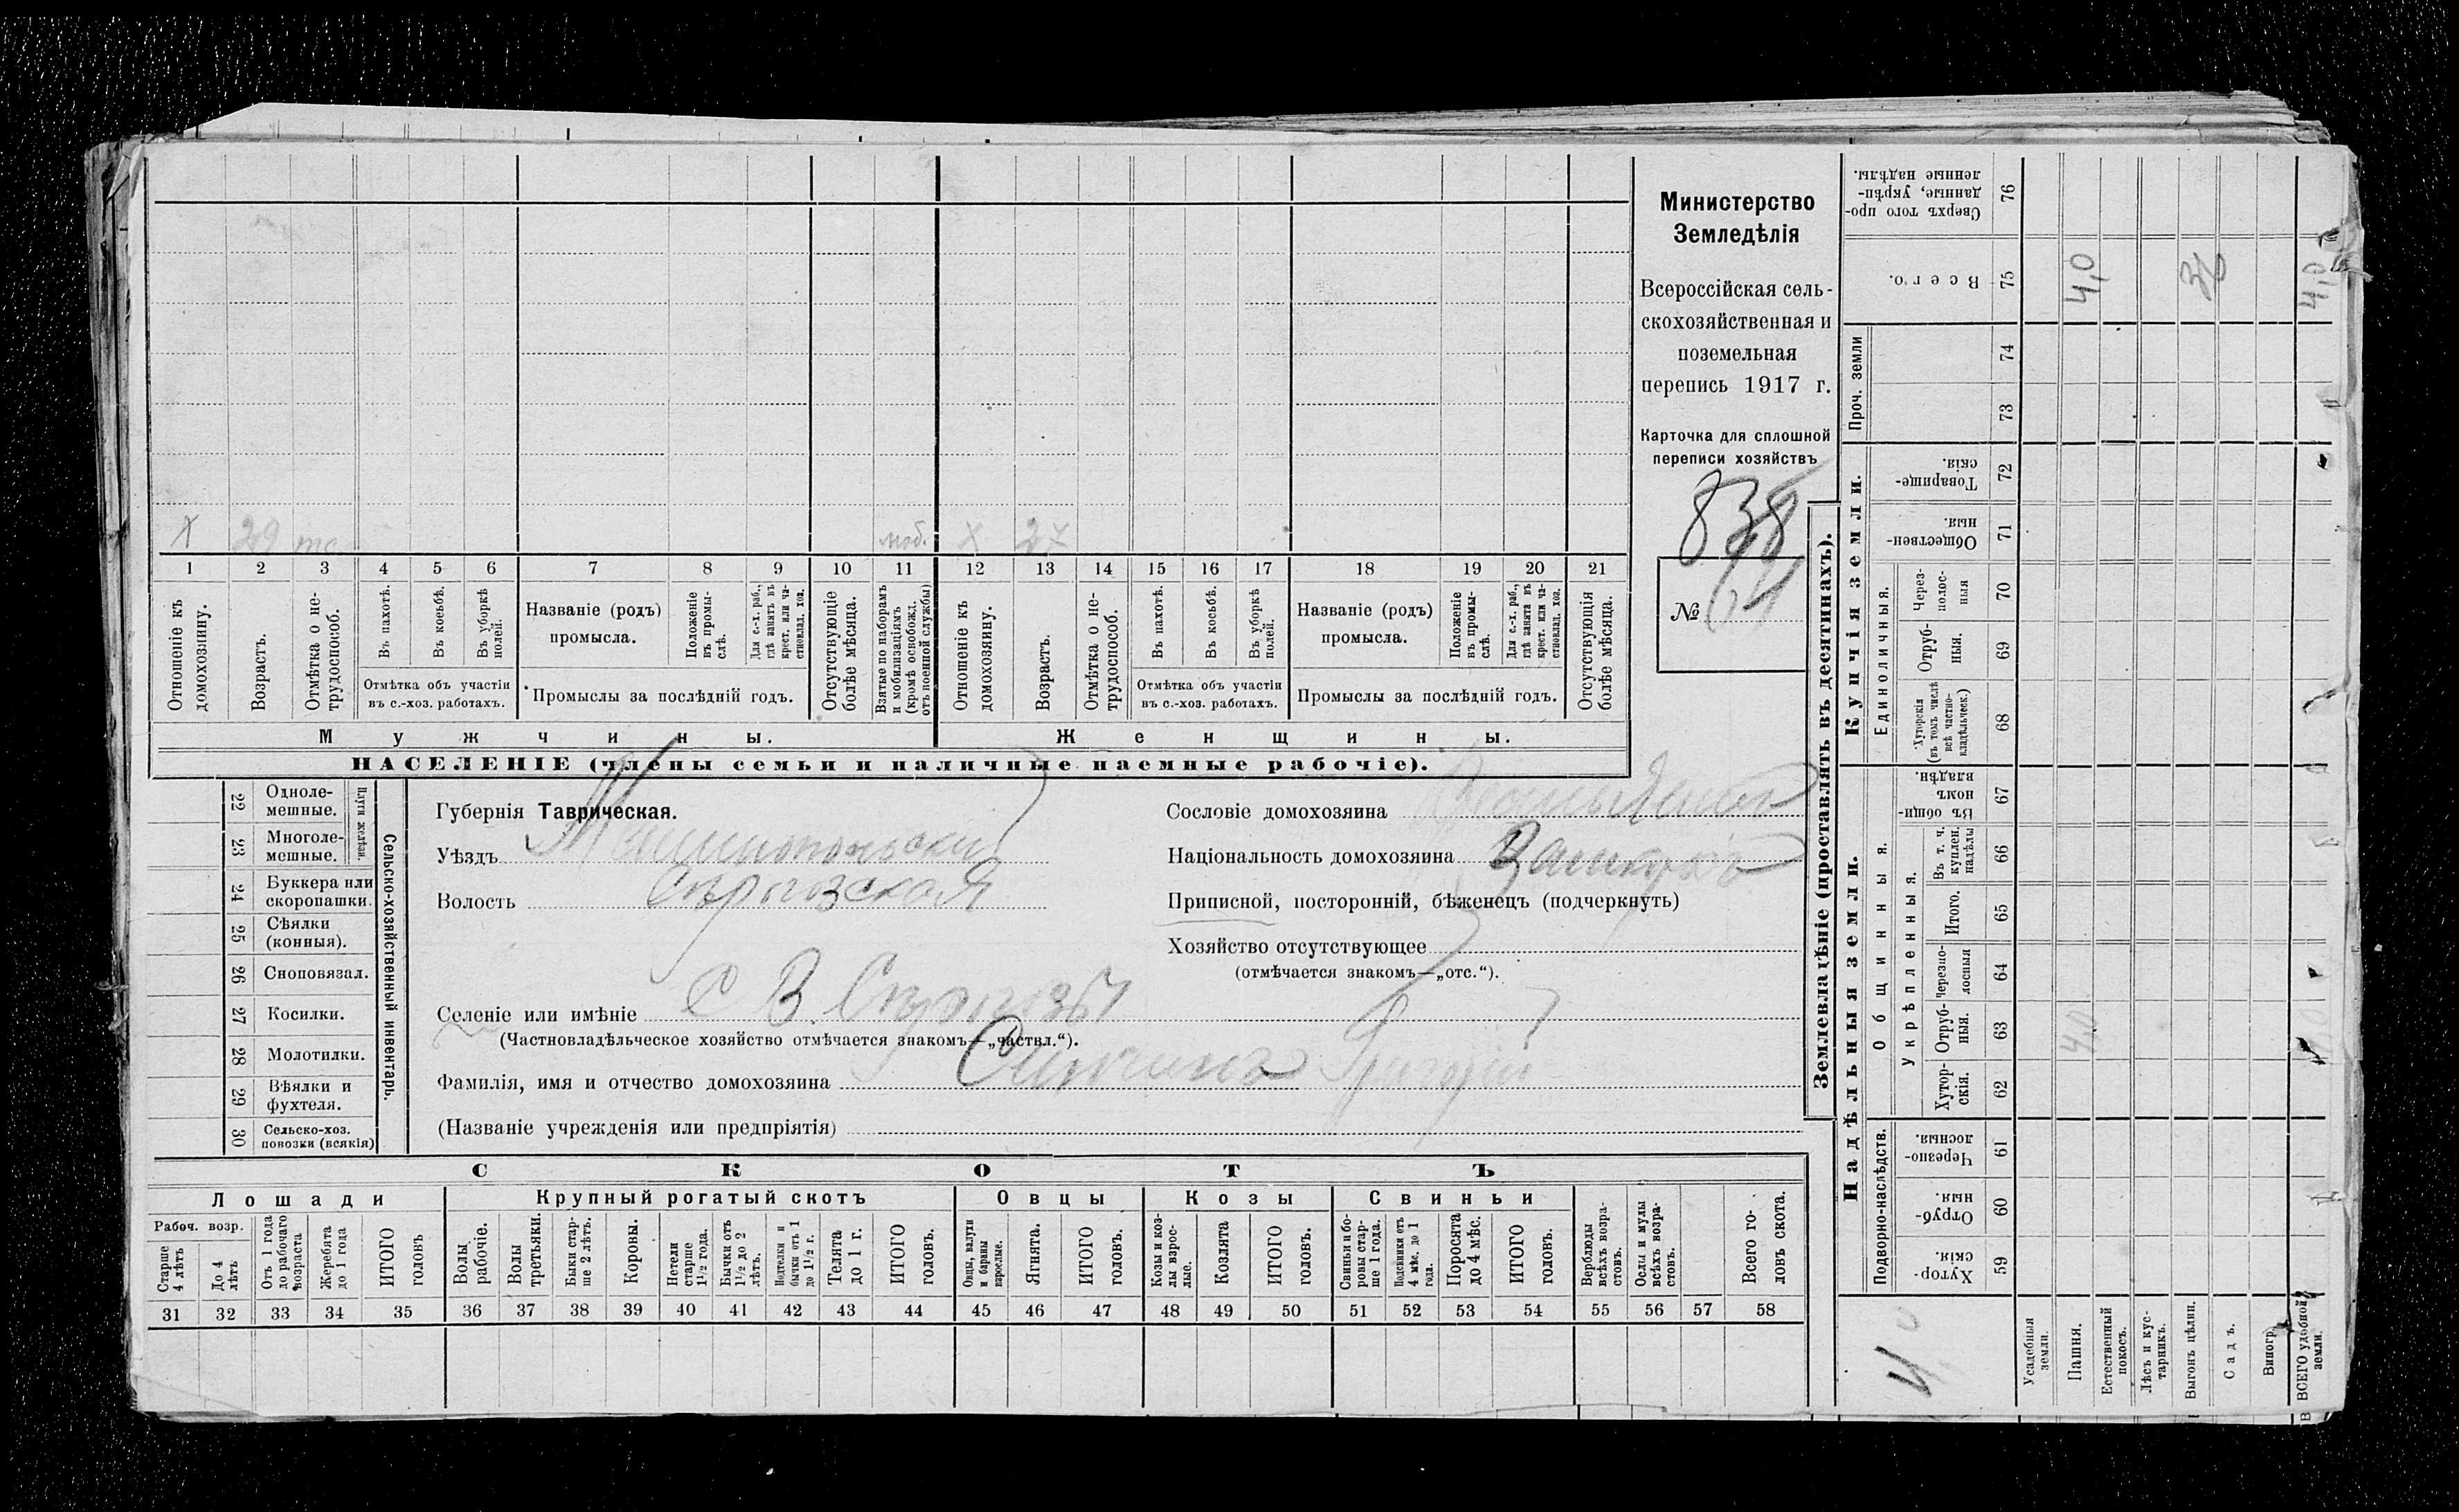 Министерство
Земледѣлія
Всероссійская сель-
скохозяйственная и
поземельная
перепись 1917 г.
Карточка для сплошной
переписи хозяйствъ
838
№ 61
Х 29 моб. Х 27
1 2 3 4 5 6 7 8 9 10 11 12 13 14 15 16 17 18 19 20 21
Отношеніе къ домохозяину.
Возрастъ.
Отмѣтка о не-трудоспособ.
Въ пахотѣ.
Въ косьбѣ.
Въ уборкѣ полей.
Отмѣтка объ участіи въ с.-хоз. работахъ.
Названіе (родъ) промысла.
Положеніе въ промы-слѣ.
Для с.-х. раб., гдѣ занятъ въ крест. или ча-стновлад. хоз.
Промыслы за послѣдній годъ.
Отсутствующіе болѣе мѣсяца.
Взятые по наборамъ и мобилизаціямъ (кромѣ освобожд. отъ военной службы)
Отношеніе къ домохозяину.
Возрастъ.
Отмѣтка о не-трудоспособ.
Въ пахотѣ.
Въ косьбѣ.
Въ уборкѣ полей.
Отмѣтка объ участіи въ с.-хоз. работахъ.
Названіе (родъ) промысла.
Положеніе въ промы-слѣ.
Для с.-х. раб., гдѣ занята въ крест. или ча-стновлад. хоз.
Промыслы за послѣдній годъ.
Отсутствующія болѣе мѣсяца.
Мужчины.
Женщины.
НАСЕЛЕНІЕ (члены семьи и наличные наемные рабочіе).
22 Одноле-мешные.
23 Многоле-мешные.
Плуги желѣзн.
24 Буккера или скоропашки.
25 Сѣялки (конныя).
26 Сноповязал.
27 Косилки.
28 Молотилки.
29 Вѣялки и фухтеля.
30 Сельско-хоз. повозки (всякія)
Сельско-хозяйственный инвентарь.
Губернія Таврическая.
Уѣздъ Мелитопольскій
Волость Сѣрогозская
Селеніе или имѣніе С В. Сѣрогозы
(Частновладѣльческое хозяйство отмѣчается знакомъ—„частвл.“).
Фамилія, имя и отчество домохозяина
(Названіе учрежденія или предпріятія)
Сословіе домохозяина
Національность домохозяина
Приписной, посторонній, бѣженецъ (подчеркнуть)
Хозяйство отсутствующее
(отмѣчается знакомъ—„отс.“).
СКОТЪ
Лошади
Рабоч. возр.
Старше 4 лѣтъ
До 4 лѣтъ
Отъ 1 года до рабочаго возраста
Жеребята до 1 года
ИТОГО головъ
Крупный рогатый скотъ
Волы рабочіе.
Волы третьяки.
Быки стар-ше 2 лѣтъ.
Коровы.
Нетели старше 1½ года.
Бычки отъ 1½ до 2 лѣтъ.
Подтелки и бычки отъ 1 до 1½ г.
Телята до 1 г.
ИТОГО головъ.
Овцы
Овцы, валухи и бараны взрослые.
Ягнята.
ИТОГО головъ.
Козы
Козы и коз-лы взрос-лые.
Козлята
ИТОГО головъ.
Свиньи
Свиньи и бо-ровы стар-ше 1 года.
Подсвинки отъ 4 мѣс. до 1 года.
Поросята до 4 мѣс.
ИТОГО головъ.
Верблюды всѣхъ возра-стовъ.
Ослы и мулы всѣхъ возра-стовъ.
Всего го-ловъ скота.
31 32 33 34 35 36 37 38 39 40 41 42 43 44 45 46 47 48 49 50 51 52 53 54 55 56 57 58
Землевладѣніе (проставлять въ десятинахъ).
Надѣльныя земли.
Купчія земли.
Проч. земли
Подворно-наслѣдств.
Общинныя.
Укрѣпленныя.
Единоличныя.
Сверхъ того про-данные, укрѣп-ленные надѣлы. 76
Всего. 75 4,0 4,0
74
73
Товарище-скія. 72
Обществен-ныя. 71
Через-полос-ныя 70
Отруб-ныя. 69
Хуторскія (въ томъ числѣ всѣ частно-владѣльческ.) 68
Въ общин-номъ владѣн. 67
Въ т. ч. куплен. надѣлы 66
Итого. 65
Черезпо-лосныя 64
Отруб-ныя. 63 4,0
Хутор-скія. 62
Черезпо-лосныя. 61
Отруб-ныя. 60
Хутор-скія. 59
Усадебныя земли.
Пашня.
Естественный покосъ.
Лѣсъ и кус-тарникъ.
Выгонъ цѣлин.
Садъ.
Виногр.
ВСЕГО удобной земли.